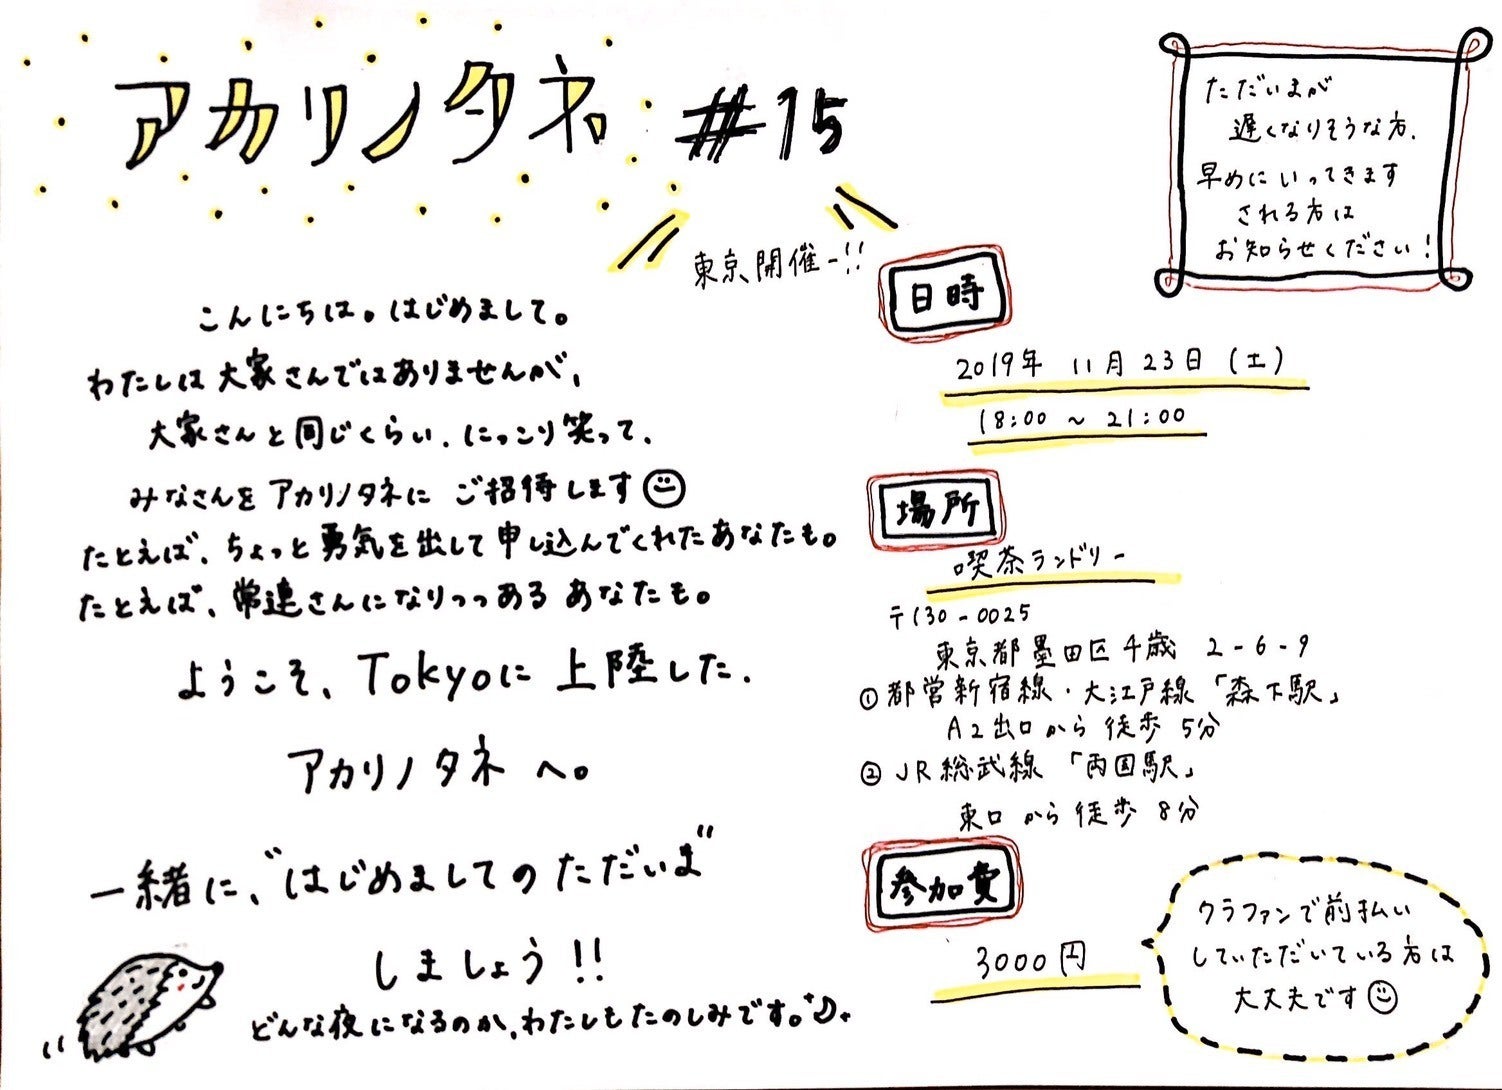 アカリノタネ #15
東京開催ー!!
ただいまが
遅くなりそうな方、
早めにいってきます
される方は
お知らせください!
こんにちは。はじめまして。
わたしは大家さんではありませんが、
大家さんと同じくらい、にっこり笑って、
みなさんをアカリノタネに ご招待します
たとえば、ちょっと勇気を出して申し込んでくれたあなたも。
たとえば、常連さんになりつつあるあなたも。
ようこそ、Tokyoに上陸した、
アカリノタネへ。
一緒に、"はじめましてのただいま"
しましょう!!
どんな夜になるのか、わたしもたのしみです。♪
日時
2019年 11月23日(土)
18:00 ~ 21:00
場所
喫茶ランドリー
〒130-0025
東京都墨田区千歳 2-6-9
①都営新宿線・大江戸線「森下駅」
A2出口から徒歩5分
②JR総武線「両国駅」
東口から徒歩8分
参加費
3000円
クラファンで前払い
していただいている方は
大丈夫です